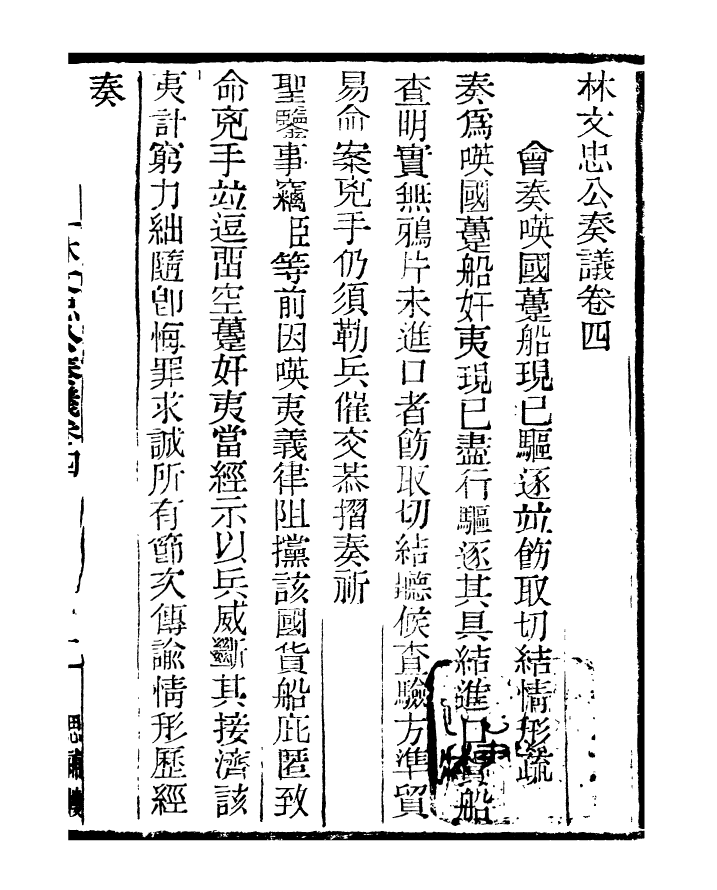 林文忠公奏議卷四
會奏㗳國躉船現已驅逐竝飭取切結情形疏
奏爲㗳國躉船奸夷現已盡行驅逐其具結進口貨船
查明實無鴉片未進口者飭取切結聽候查驗方準貿
易命案兇手仍須勒兵催交恭摺奏祈
聖鑒事竊臣等前因㗳夷義律阻擋該國貨船庇匿致
命兇手竝逗畱空躉奸夷當經示以兵威斷其接濟該
夷計窮力絀隨卽悔罪求誠所有節次傳諭情形歷經
奏
林文忠公奏議卷四
思補樓